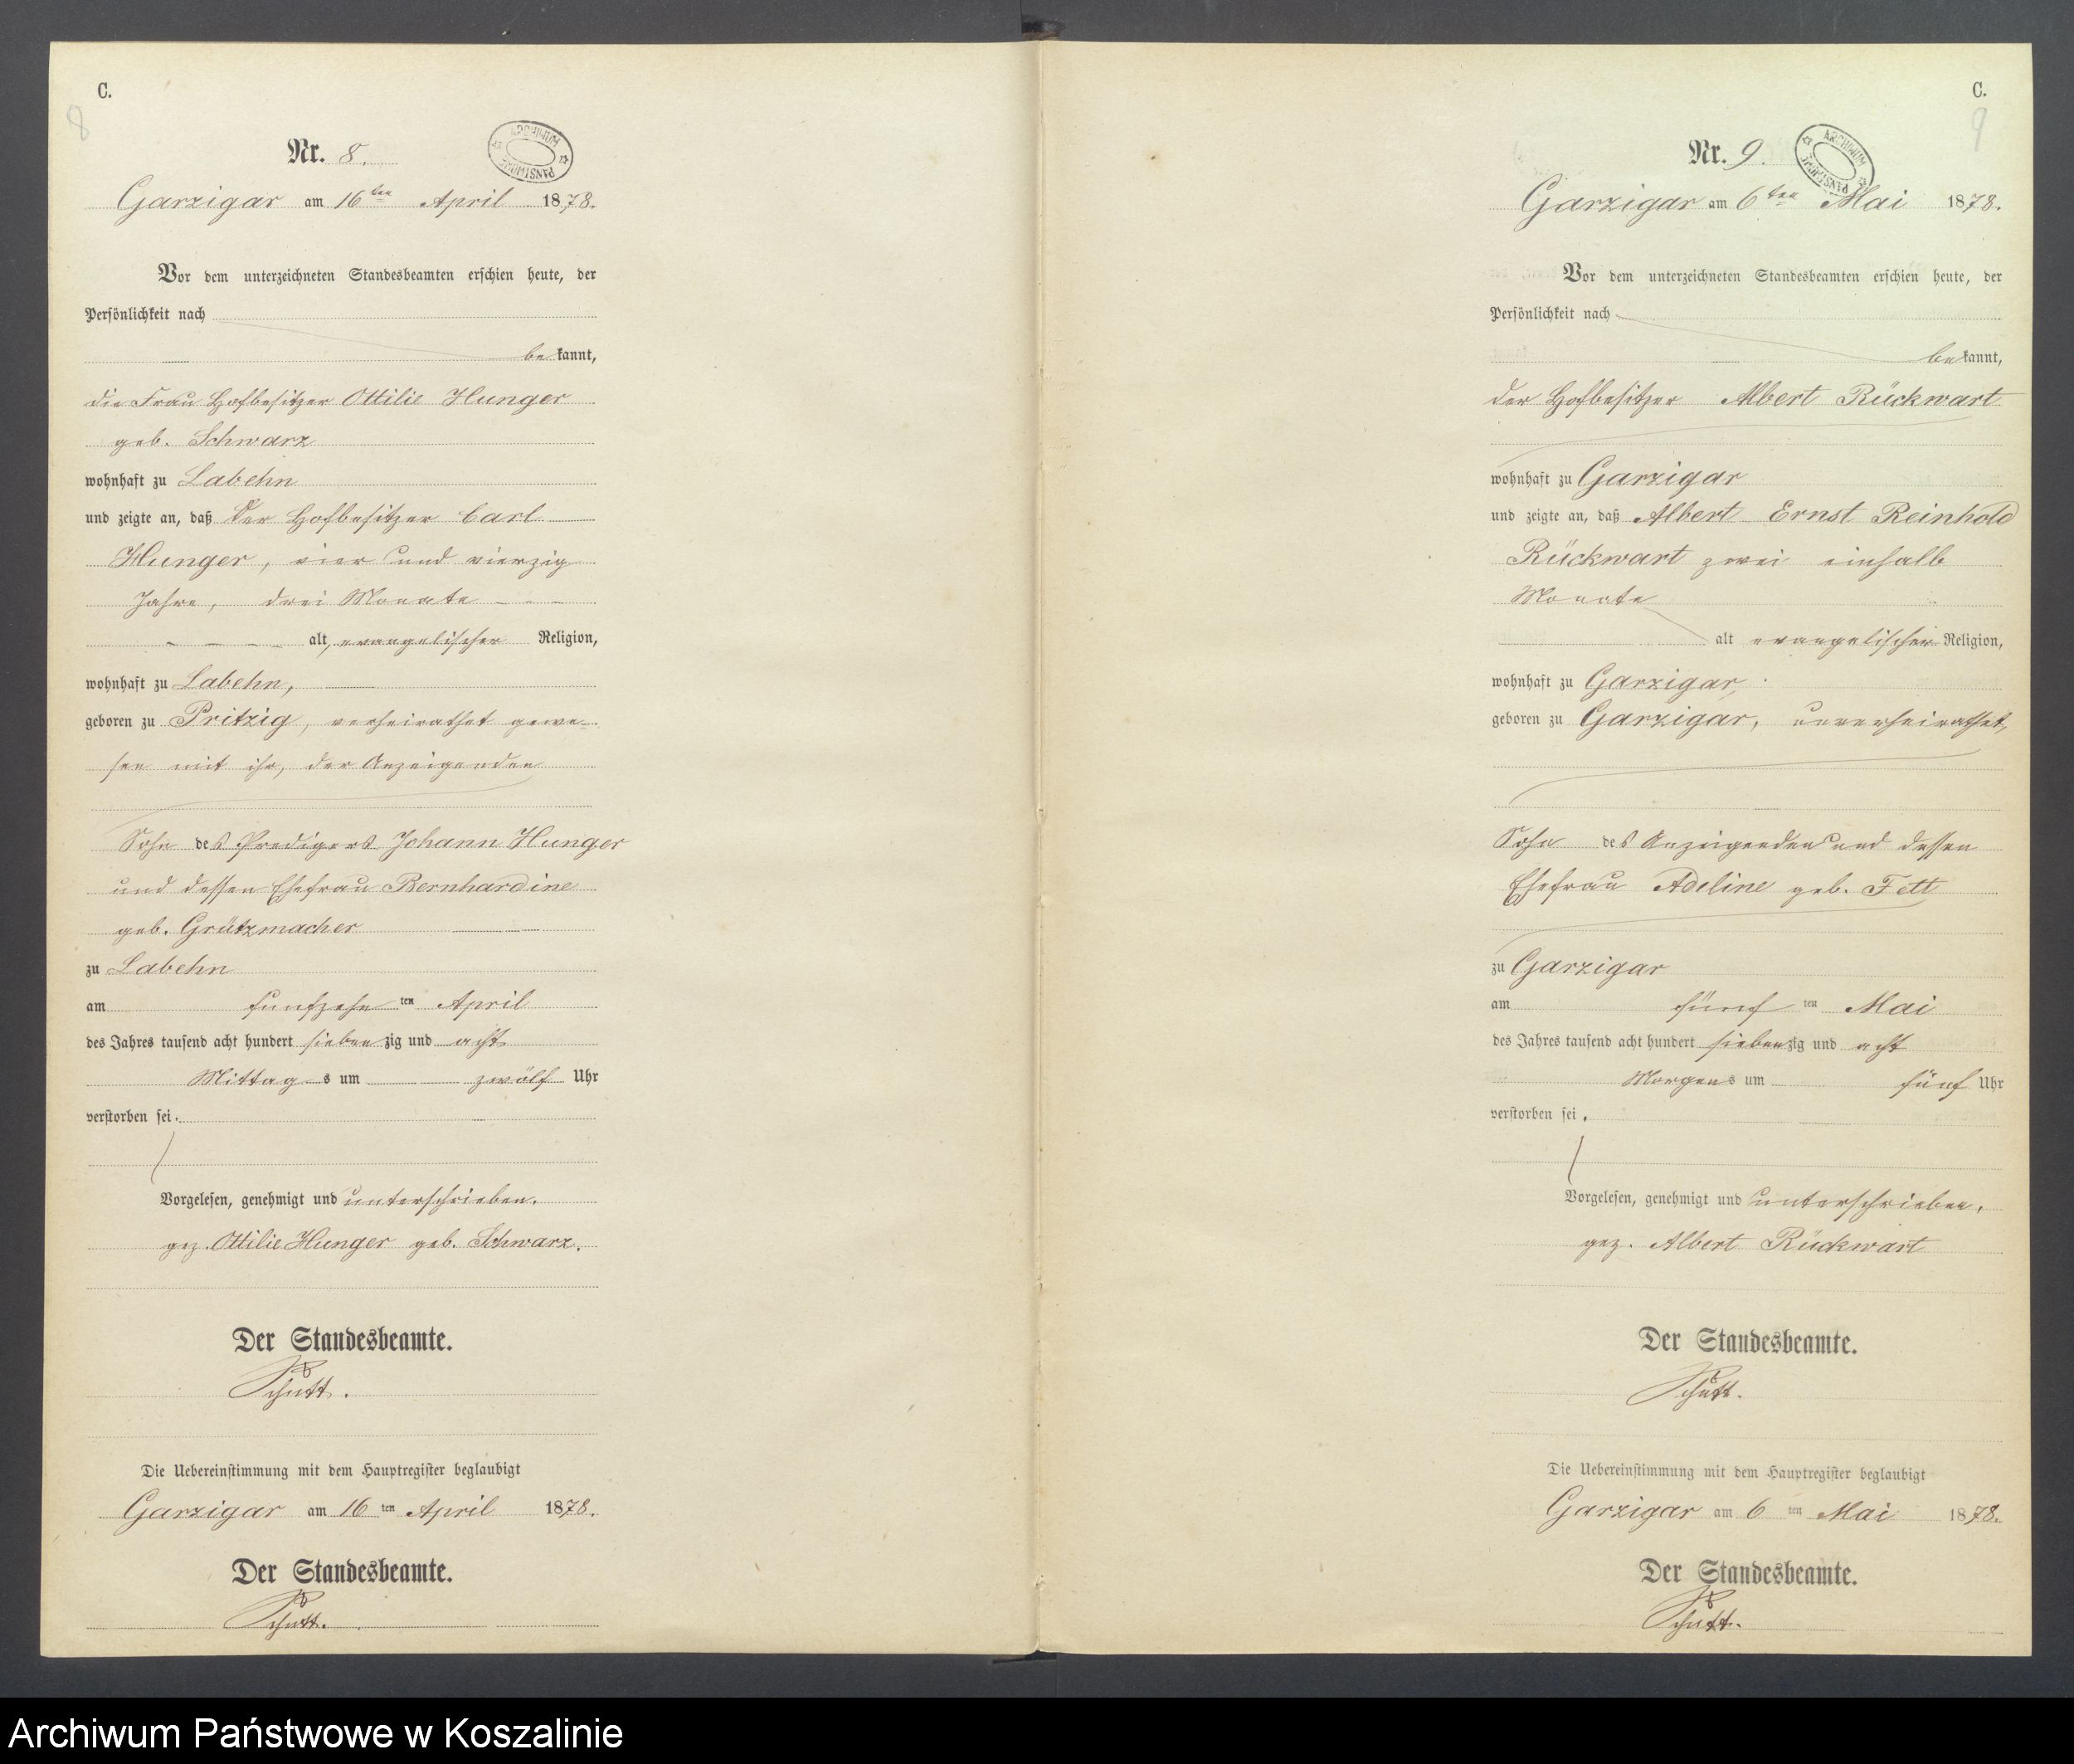 C.
8
Nr. 8.
ARCHIWUM PAŃSTWOWE
Garzigar am 16ten April 1878.
Vor dem unterzeichneten Standesbeamten erschien heute, der
Persönlichkeit nach
bekannt,
die Frau Hofbesitzer Ottilie Hunger
geb. Schwarz
wohnhaft zu Labehn
und zeigte an, daß der Hofbesitzer Carl
Hunger, vier und vierzig
Jahre, drei Monate
alt, evangelischer Religion,
wohnhaft zu Labehn,
geboren zu Pritzig, verheirathet gewe-
sen mit ihr, der Anzeigenden
Sohn des Predigers Johann Hunger
und dessen Ehefrau Bernhardine
geb. Grützmacher
zu Labehn
am funfzehnten April
des Jahres tausend acht hundert siebenzig und acht
Mittags um zwölf Uhr
verstorben sei.
Vorgelesen, genehmigt und unterschrieben.
gez. Ottilie Hunger geb. Schwarz.
Der Standesbeamte.
Schutt.
Die Uebereinstimmung mit dem Hauptregister beglaubigt
Garzigar am 16ten April 1878.
Der Standesbeamte.
Schutt.
C.
9
Nr. 9.
ARCHIWUM PAŃSTWOWE
Garzigar am 6ten Mai 1878.
Vor dem unterzeichneten Standesbeamten erschien heute, der
Persönlichkeit nach
bekannt,
der Hofbesitzer Albert Rückwart
wohnhaft zu Garzigar
und zeigte an, daß Albert Ernst Reinhold
Rückwart zwei einhalb
Monate
alt evangelischer Religion,
wohnhaft zu Garzigar,
geboren zu Garzigar, unverheirathet,
Sohn des Anzeigenden und dessen
Ehefrau Adeline geb. Fett
zu Garzigar
am fünften Mai
des Jahres tausend acht hundert siebenzig und acht
Morgens um fünf Uhr
verstorben sei.
Vorgelesen, genehmigt und unterschrieben.
gez. Albert Rückwart
Der Standesbeamte.
Schutt.
Die Uebereinstimmung mit dem Hauptregister beglaubigt
Garzigar am 6ten Mai 1878.
Der Standesbeamte.
Schutt.
Archiwum Państwowe w Koszalinie